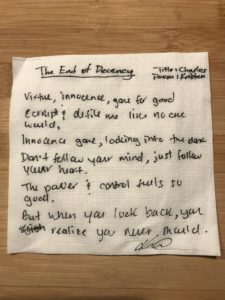 The End of Decency
Title: Charles
Poem: Kristen
Virtue, innocence, gone for good
Corrupt & defile me like no one
would,
Innocence gone, looking into the dark
Don't follow your mind, just follow
your heart.
The power & control fuels so
good.
But when you look back, you
realize you never should.